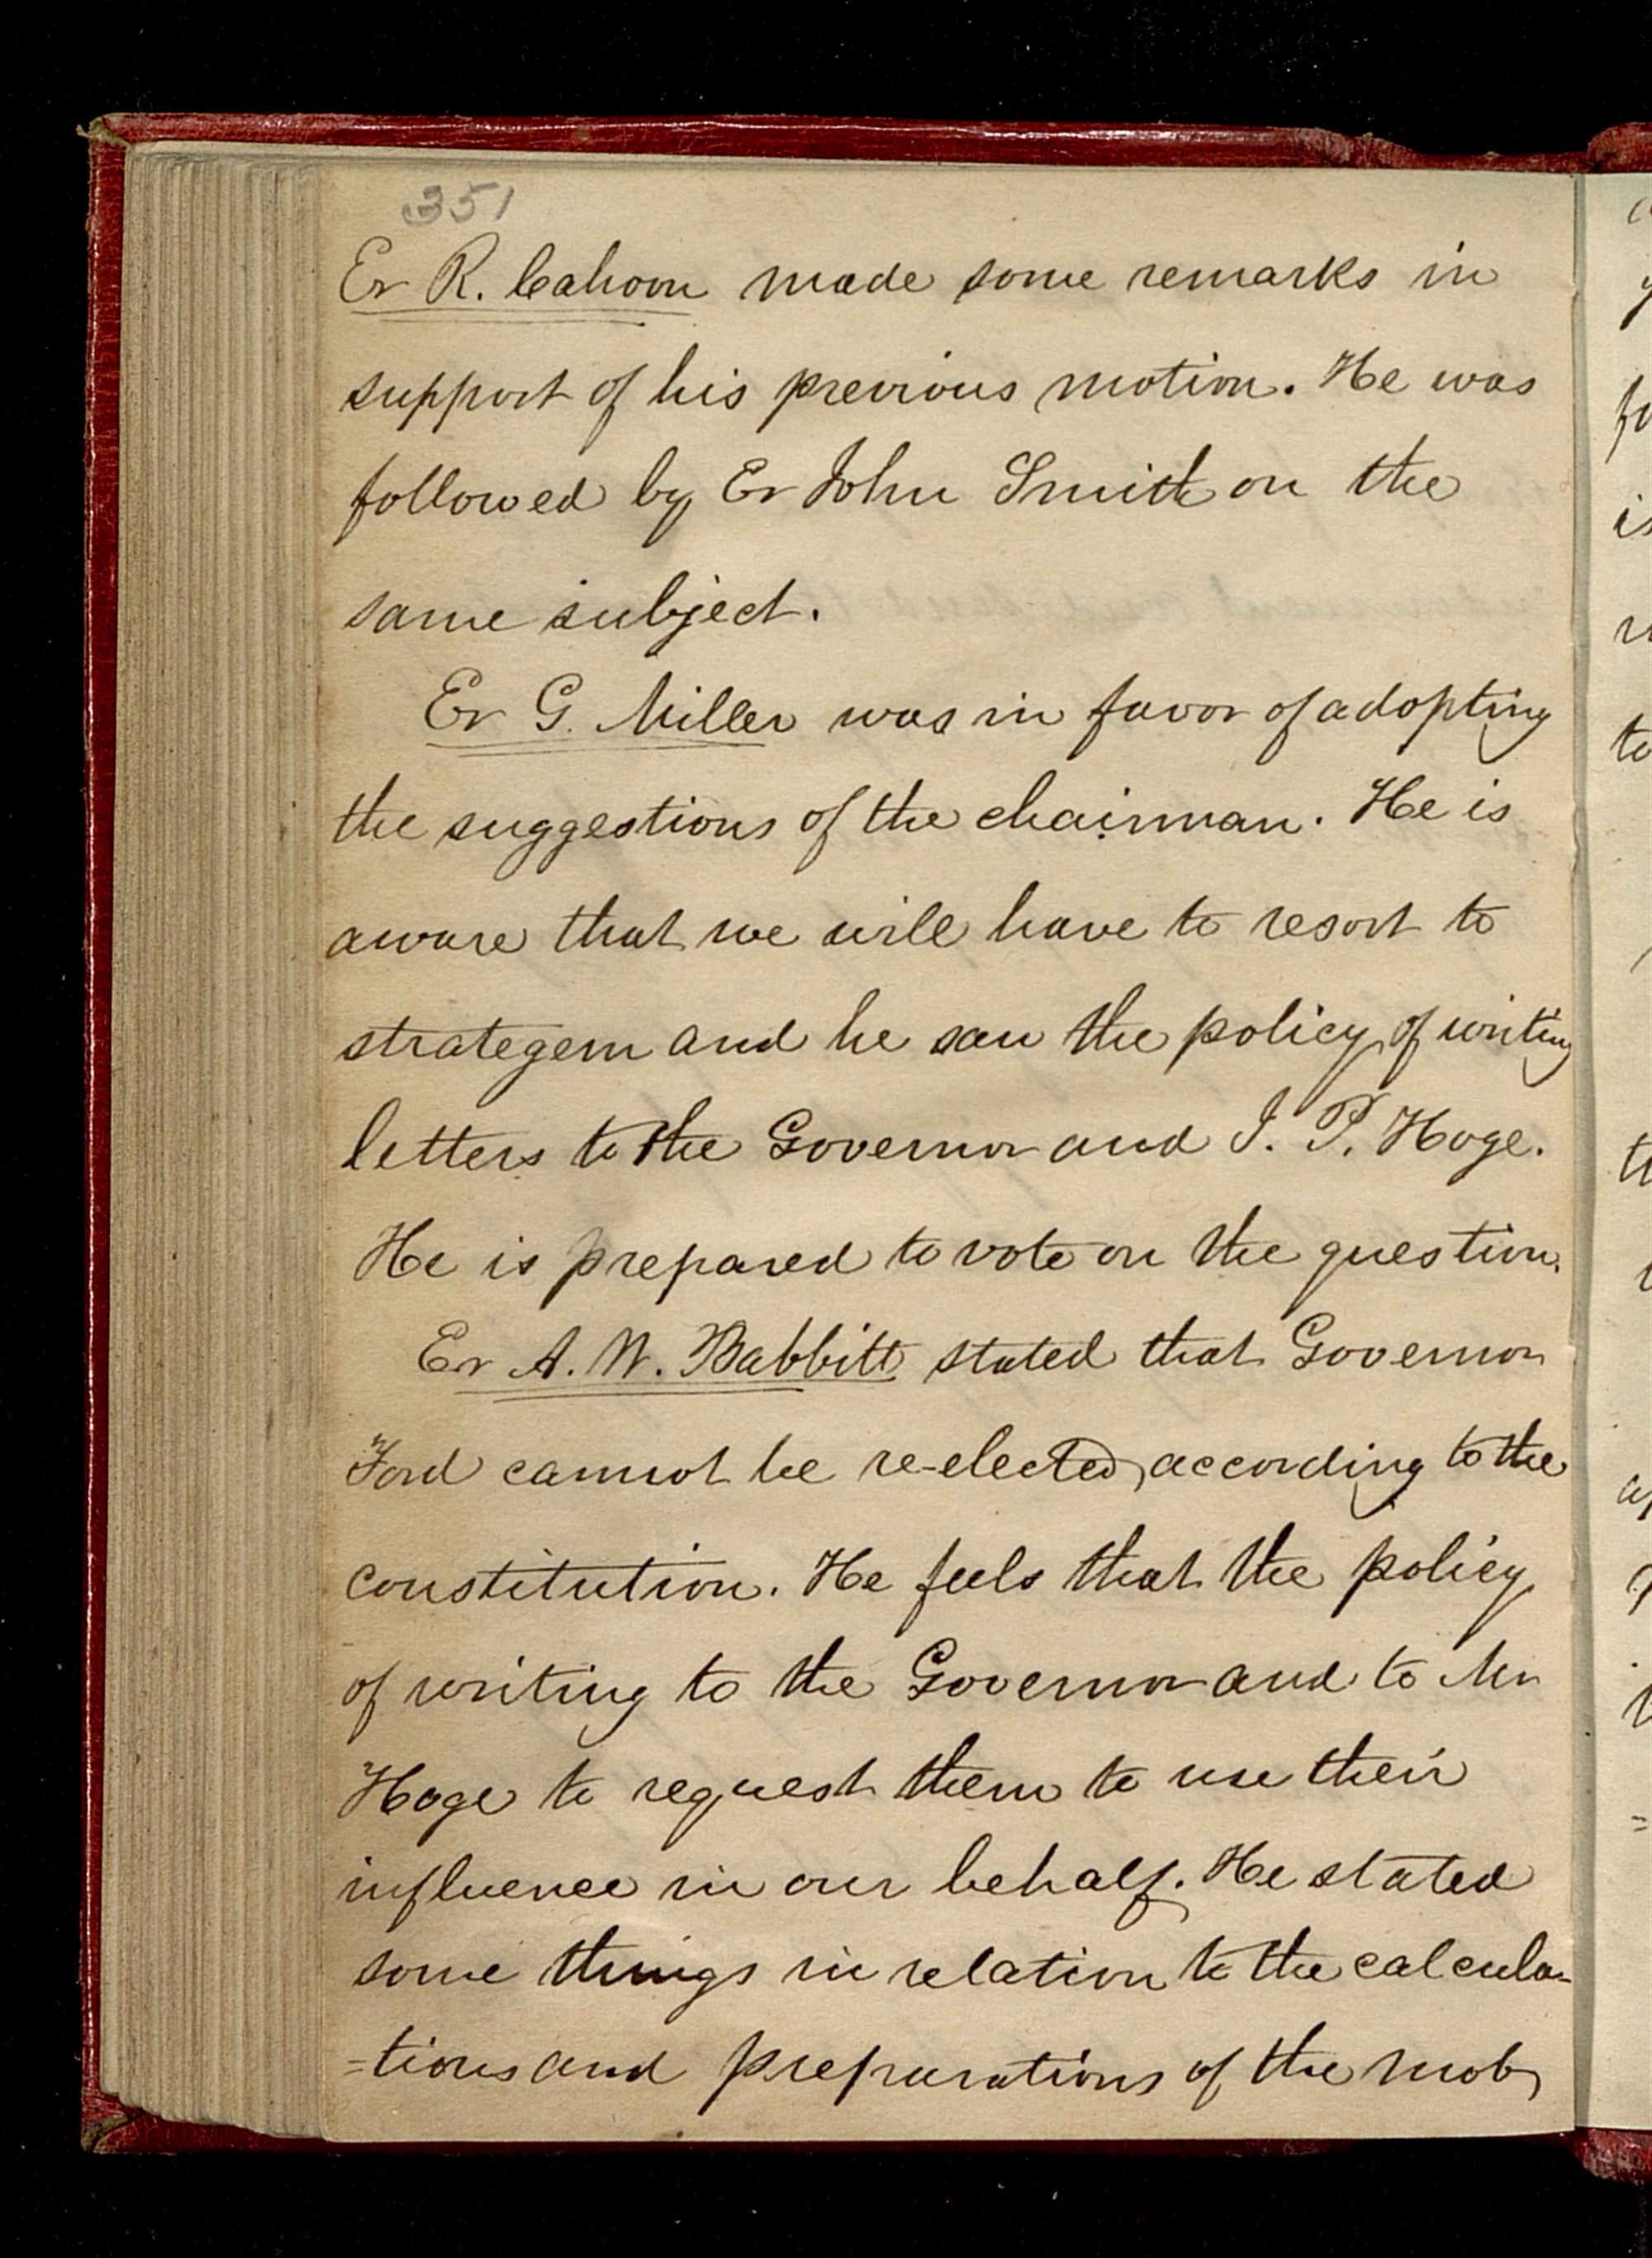 351
Er R. Cahoon made some remarks in
support of his previous motion. He was
followed by Er John Smith on the
same subject.
Er G. Miller was in favor of adopting
the suggestions of the chairman. He is
aware that we will have to resort to
strategem and he saw the policy of writing
letters to the Governor and J. P. Hoge.
He is prepared to vote on the question.
Er A. W. Babbitt stated that Governor
Ford cannot be re-elected, according to the
constitution. He feels that the policy
of writing to the Governor and to Mr
Hoge to request them to use their
influence in our behalf. He stated
some things in relation to the calcula=
=tions and preparations of the mob,